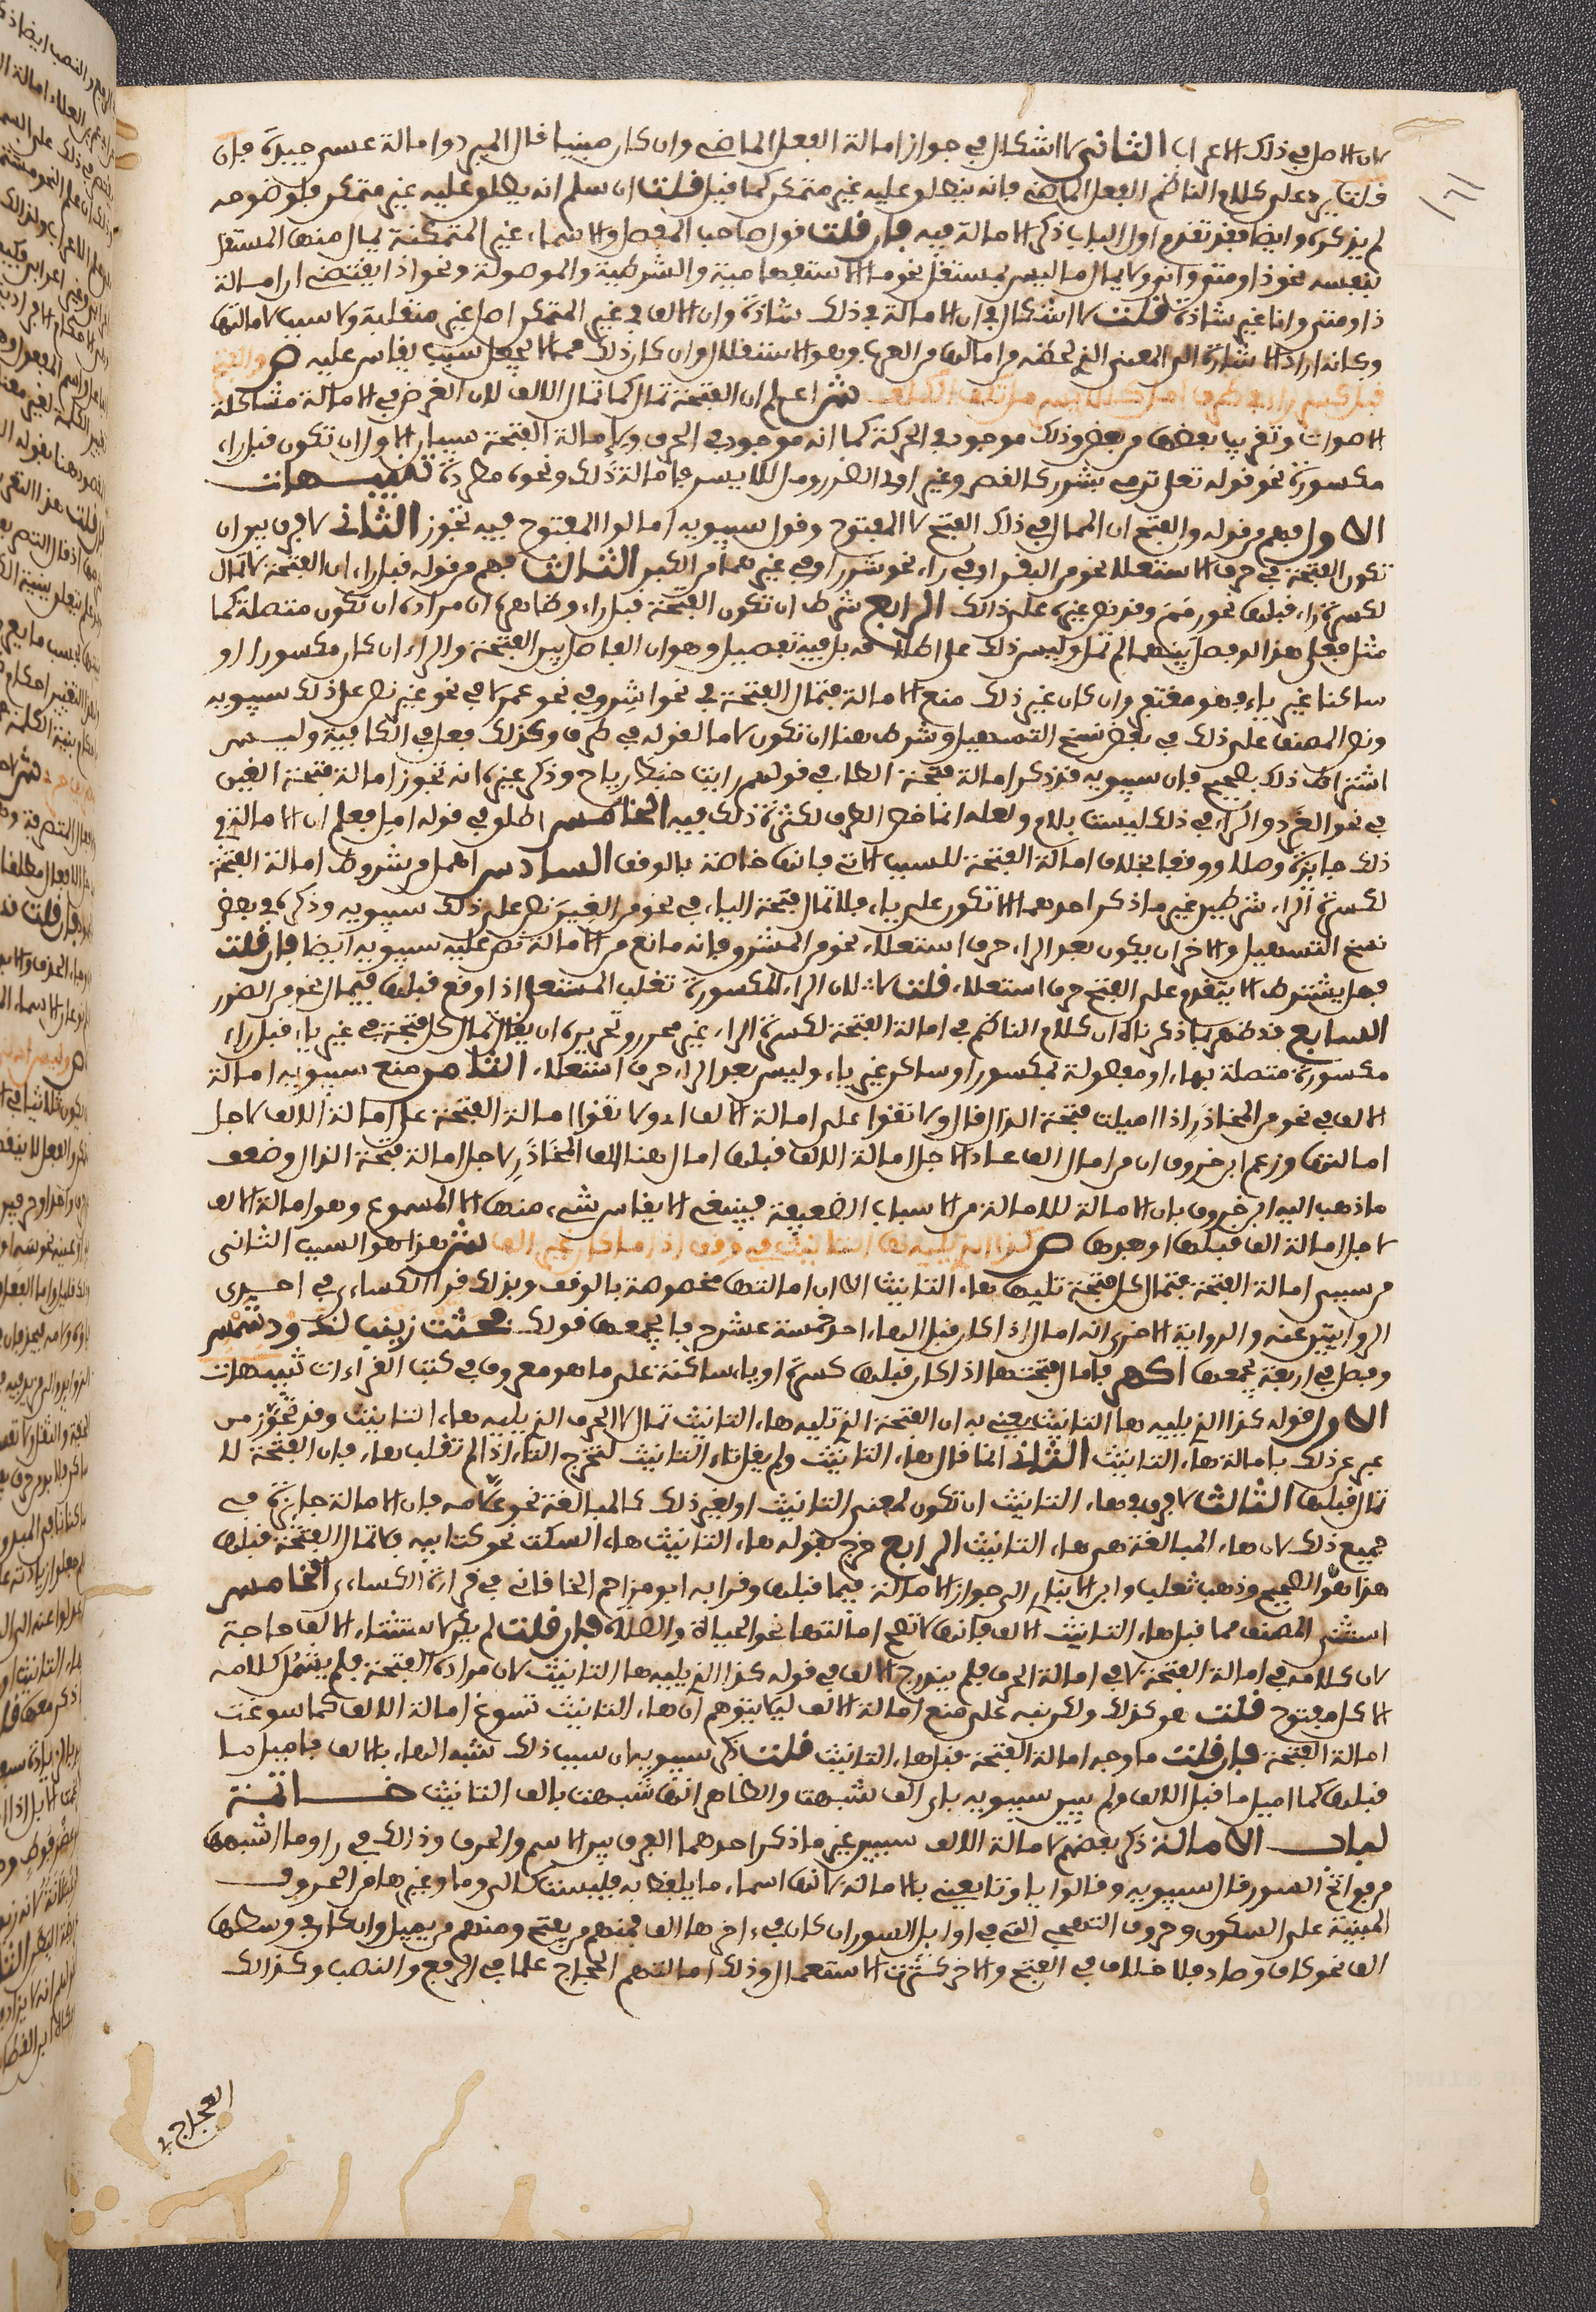 لان الاصل في ذلك الاعراب الثاني لا اشكال في جواز امالة الفعل الماضي وان كان مبنيا قال المبرد وامالة عسى جيدة فان
قلت يرد على كلام الناظم الفعل الماضي فانه ينطلق عليه غير متمكن كما قيل قلت ان سلم انه يطلق عليه غير متمكن فلوضوحه
لم يذكره وايضا فقد تقدم اول الباب ذكر الامالة فيه فان قلت قول صاحب المفصل والاسماء غير المتمكنة يمال منها المستقل
بنفسه نحو ذا ومتى وانى ولا يمال ما ليس بمستقل نحو ما الاستفهامية والشرطية والموصولة ونحو اذا يقتضي ان امالة
ذا ومتى وانا غير شاذة قلت لا اشكال في ان الامالة في ذلك شاذة وان الالف في غير المتمكن اصل غير منقلبة ولا سبب لامالتها
وكانه اراد الاشارة الى المعنى الذي لحظه من امالها من العرب وهو الاستقلال وان كان ذلك مما لا يجعل سببا يقاس عليه ص والفتح
قبل كسر راء في طرف امل كللايسر مل تكف الكلف ش اعلم ان الفتحة تمال كما تمال الالف لان الغرض في الامالة مشاكلة
الاصوات وتقريب بعضها من بعض وذلك موجود في الحركة كما انه موجود في الحرف ولامالة الفتحة سببان الاول ان تكون قبل راء
مكسورة نحو قوله تعلى ترمي بشرر كالقصر وغير اولى الضرر ومل للايسر فامالة ذلك ونحوه مطردة تنبيهات
الاول فهم من قوله والفتح ان الممال في ذلك الفتح لا المفتوح وقول سيبويه امالوا المفتوح فيه تجوز الثاني لا فرق بين ان
تكون الفتحة في حرف الاستعلاء نحو من البقر او في راء نحو شرر او في غيرهما من الكبر الثالث فهم من قوله قبل راء ان الفتحة لا تمال
لكسرة راء قبلها نحو رمم وقد نص غيره على ذلك الرابع شرط ان تكون الفتحة قبل راء وظاهره ان مراده ان تكون متصلة كما
مثل فعلى هذا لو فصل بينهما لم تمل وليس ذلك على اطلاقه بل فيه تفصيل وهو ان الفاصل بين الفتحة والراء ان كان مكسورا او
ساكنا غير ياء فهو مغتفر وان كان غير ذلك منع الامالة فتمال الفتحة في نحو اشِر وفي نحو عمر لا في نحو غير نص على ذلك سيبويه
ونص المصنف على ذلك في بعض نسخ التسهيل وشرط هنا ان تكون لاما لقوله في طرف وكذلك فعل في الكافية وليس
اشتراط ذلك بصحيح فان سيبويه قد ذكر امالة فتحة الطاء في قولهم رايت خبط رياح وذكر غيره انه تجوز امالة فتحة العين
في نحو العرد والراء في ذلك ليست بلام ولعله انما خص الطرف لكثرة ذلك فيه الخامس اطلق في قوله امل فعلم ان الامالة في
ذلك جايزة وصلا ووقفا بخلاف امالة الفتحة للسبب الاتي فانها خاصة بالوقف السادس اهمل من شروط امالة الفتحة
لكسرة الراء شرطين غير ما ذكر احدهما الا تكون على ياء فلا تمال فتحة الياء في نحو من الغير نص على ذلك سيبويه وذكره في بعض
نسخ التسهيل والاخر ان يكون بعد الراء حرف استعلاء نحو من المشرق فانه مانع من الامالة نص عليه سيبويه ايضا فان قلت
فهل يشترط الا يتقدم على الفتح حرف استعلاء قلت لا لان الراء المكسورة تغلب المستعلي اذا وقع قبلها فيمال نحو من الضرر
السابع قد ظهر بما ذكرناه ان كلام الناظم في امالة الفتحة لكسرة الراء غير محرر وتحريره ان يقال تمال كل فتحة في غير ياء قبل راء
مكسورة متصلة بها او مفصولة بمكسور او ساكن غير ياء وليس بعد الراء حرف استعلاء الثامن منع سيبويه امالة
الالف في نحو من المحاذر اذا اميلت فتحة الذال قال ولا تقوا على امالة الالف اي ولا تقوا امالة الفتحة على امالة الالف لاجل
امالتها وزعم ابن خروف ان من امال الف عمادا لاجل امالة الالف قبلها امال هنا الف المحاذر لاجل امالة فتحة الذال وضعف
ما ذهب اليه ابن خروف بان الامالة للامالة من الاسباب الضعيفة فينبغي الا يقاس شيء منها الا المسموع وهو امالة الالف
لاجل امالة الف قبلها او بعدها ص كذا الذي تليه ها التانيث في وقف اذا ما كان غير الف ش هذا هو السبب الثاني
من سببي امالة الفتحة فتمال كل فتحة تليها هاء التانيث الا ان امالتها مخصوصة بالوقف وبذلك قرا الكساءي في احدى
الروايتين عنه والرواية الاخرى انه امال اذا كان قبل الهاء احد خمسة عشر حرفا يجمعها قولك فجثت زينب لذود شمس
وفصل في اربعة يجمعها اكهر فامال فتحتها اذا كان قبلها كسرة او ياء ساكنة على ما هو معروف في كتب القراءات تنبيهات
الاول قوله كذا الذي يليه ها التانيث يعني به ان الفتحة التي تليه هاء التانيث تمال لا الحرف الذي يليه هاء التانيث وقد تجوز من
عبر عن ذلك بامالة هاء التانيث الثاني انما قال هاء التانيث ولم يقل تاء التانيث لتخرج التاء اذا لم تقلب هاء فان الفتحة لا
تمال قبلها الثالث لا فرق في هاء التانيث ان تكون لمعنى التانيث او لغير ذلك كالمبالغة نحو علامة فان الامالة جايزة في
جميع ذلك لان هاء المبالغة هي هاء التانيث الرابع خرج بقوله هاء التانيث هاء السكت نحو كتابيه فلا تمال الفتحة قبلها
هذا هو الصحيح وذهب ثعلب وابن الانباري الى جواز الامالة فيما قبلها وقرا به ابو مزاحم الخاقاني في قراءة الكساءي الخامس
استثنى المصنف مما قبل هاء التانيث الالف فانها لا تصح امالتها نحو الحياة والصلاة فان قلت لم يكن لاستثناء الالف حاجة
لان كلامه في امالة الفتحة لا في امالة الحرف فلم يندرج الالف في قوله كذا الذي يليه ها التانيث لان مراده الفتحة فلم يشمل كلامه
الا كل مفتوح قلت هو كذلك ولكن نبه على منع امالة الالف ليلا يتوهم ان هاء التانيث تسوغ امالة الالف كما سوغت
امالة الفتحة فان قلت ما وجه امالة الفتحة قبل هاء التانيث قلت ذكر سيبويه ان سبب ذلك شبه الهاء بالالف فاميل ما
قبلها كما اميل ما قبل الالف ولم يبين سيبويه باي الف شبهت والظاهر انها شبهت بالف التانيث خاتمة
لباب الامالة ذكر بعضهم لامالة الالف سببين غير ما ذكر احدهما الفرق بين الاسم والحرف وذلك في را وما اشبهها
من فواتح السور قال سيبويه وقالوا با وتا يعني بالامالة لانها اسماء ما يلفظ به فليست كالى وما وغيرها من الحروف
المبنية على السكون وحروف التهجي التي في اوايل السور ان كان في اخرها الف فمنهم من يفتح ومنهم من يميل وان كان في وسطها
الف نحو كاف وصاد فلا خلاف في الفتح والاخر كثرة الاستعمال وذلك امالتهم الحجاج علما في الرفع والنصب وكذلك
العجاج